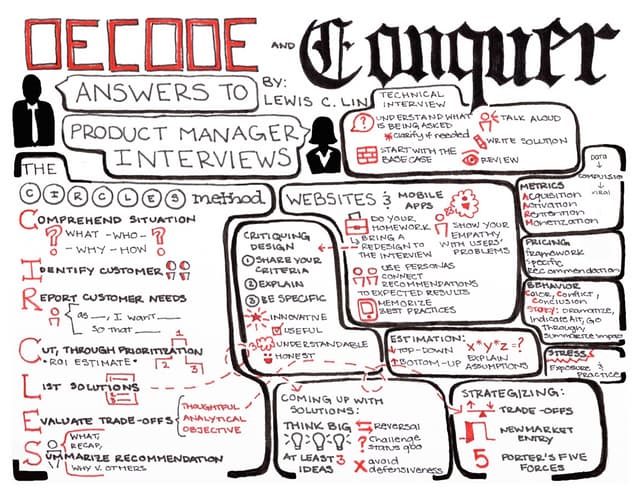 DECODE AND Conquer
ANSWERS TO
PRODUCT MANAGER
INTERVIEWS
BY:
LEWIS C. LIN
TECHNICAL
INTERVIEW
? UNDERSTAND WHAT
IS BEING ASKED
*clarify if needed
START WITH THE
BASE CASE
TALK ALOUD
WRITE SOLUTION
REVIEW
THE
CIRCLES method
COMPREHEND SITUATION
? WHAT - WHO - ?
- WHY - HOW
IDENTIFY CUSTOMER
REPORT CUSTOMER NEEDS
as __, I want __
so that __
CUT, THROUGH PRIORITIZATION
• ROI ESTIMATE •
1
2 3
LIST SOLUTIONS
EVALUATE TRADE-OFFS
THOUGHTFUL
ANALYTICAL
OBJECTIVE
WHAT,
RECAP,
SUMMARIZE RECOMMENDATION
WHY V. OTHERS
WEBSITES & MOBILE
APPS
DO YOUR
HOMEWORK
BRING A
REDESIGN TO
THE INTERVIEW
SHOW YOUR
EMPATHY
WITH USERS'
PROBLEMS
USE PERSONAS
CONNECT
RECOMMENDATIONS
TO EXPECTED RESULTS
MEMORIZE
BEST PRACTICES
CRITIQUING
DESIGN
1 SHARE YOUR
CRITERIA
2 EXPLAIN
3 BE SPECIFIC
INNOVATIVE
USEFUL
UNDERSTANDABLE
HONEST
DATA
COMPULSION
VIRAL
METRICS
Acquisition
Activation
Retention
Monetization
PRICING
framework
specific
recommendation
BEHAVIOR
Color, conflict,
conclusion
STORY: dramatize,
indicate Alt, Go
Through,
Summarize impact
STRESS
EXPOSURE &
PRACTICE
ESTIMATION:
TOP-DOWN
BOTTOM-UP
x*y*z=?
EXPLAIN
ASSUMPTIONS
COMING UP WITH
SOLUTIONS:
THINK BIG
AT LEAST 3
IDEAS
REVERSAL
? Challenge
status quo
x avoid
defensiveness
STRATEGIZING:
TRADE-OFFS
NEW MARKET
ENTRY
5 PORTER'S FIVE
FORCES